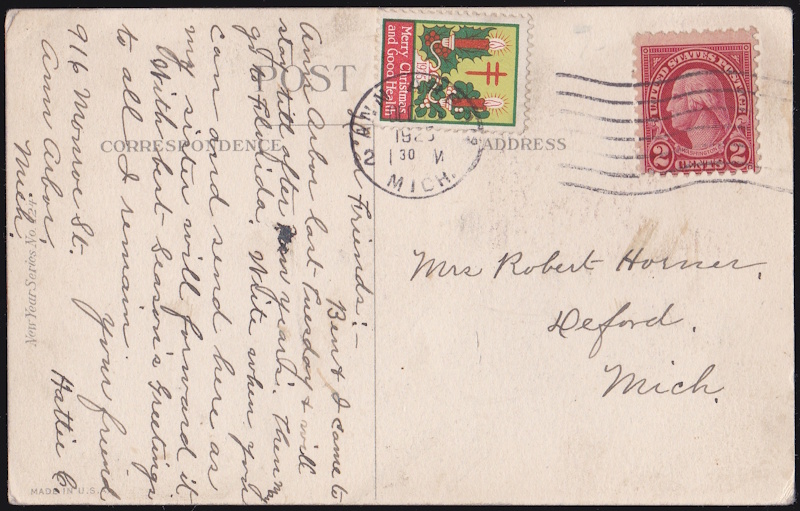 POST
CORRESPONDENCE
ADDRESS
Dear Friends:-
Bert & I came to
Ann Arbor last Tuesday & will
stay till after New years. Then my
go to Florida. Write when you
can and send here as
my sister will forward it
With best Season's Greetings
to all I remain
Your friend
Hattie C.
916 Monroe St.
Ann Arbor,
Mich.
New Years Series No.
MADE IN U.S.
Merry Christmas
and Good Health
1923
MICH.
UNITED STATES POSTAGE
WASHINGTON
2 CENTS 2
Mrs Robert Horner,
Deford,
Mich.